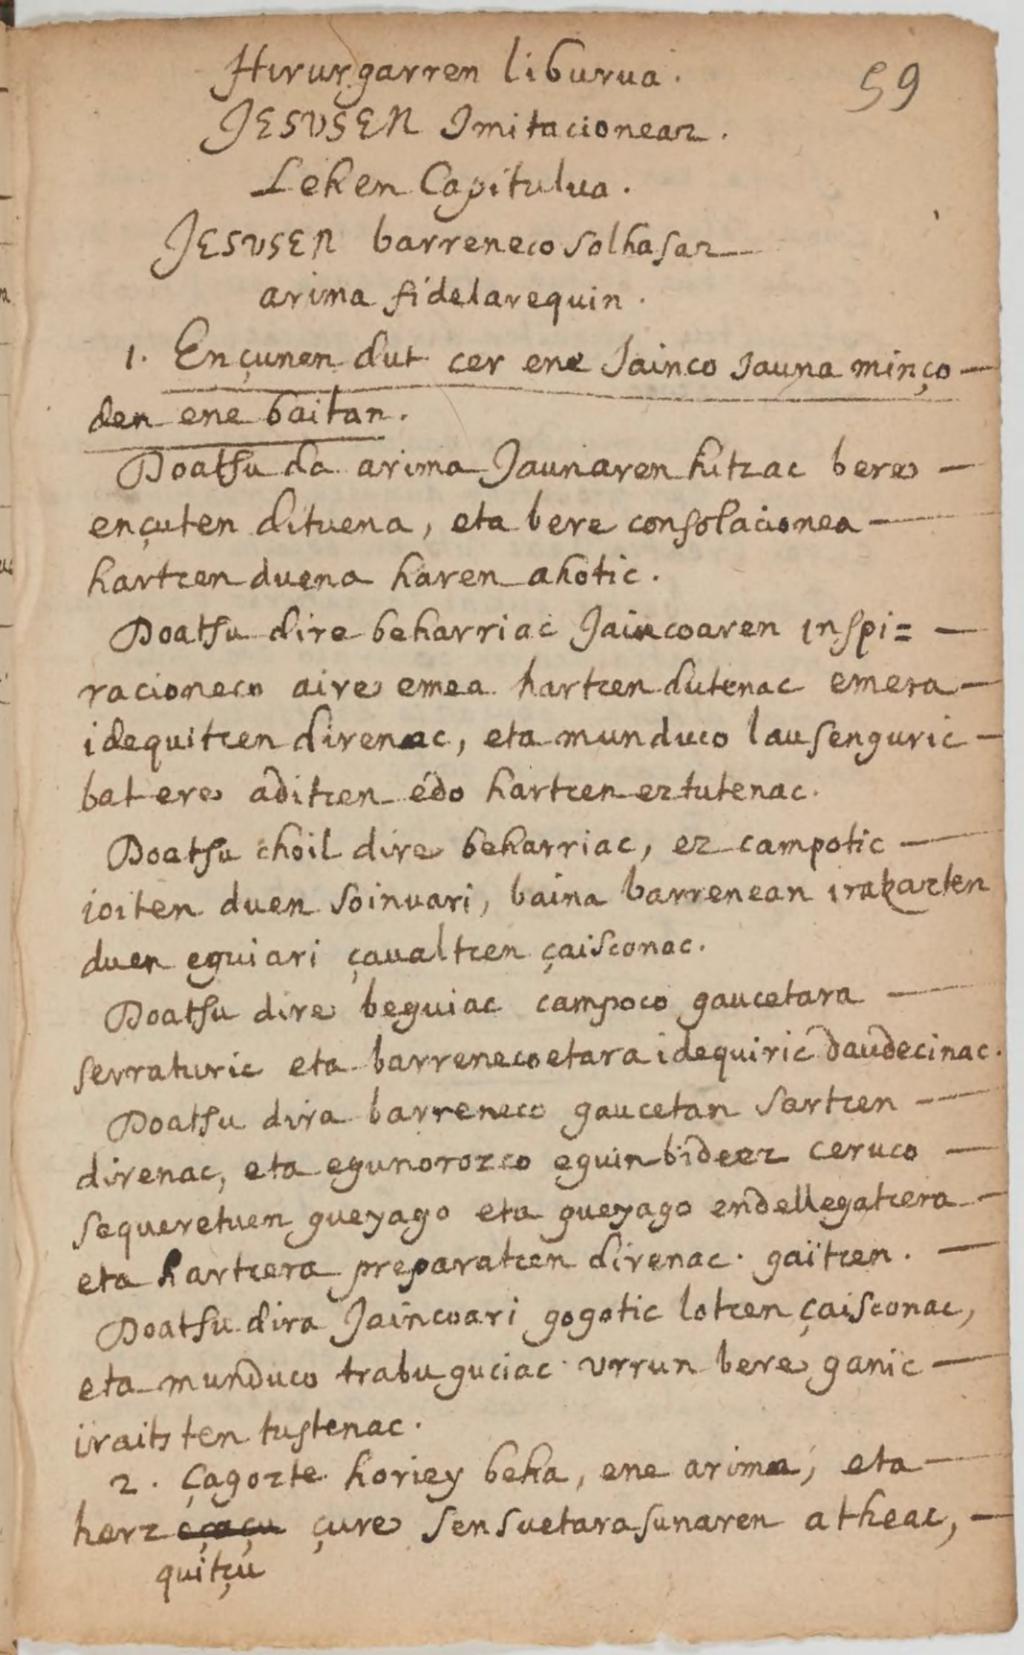 Hirurgarren liburua.
59
JESUSEN Imitacioneaz.
Lehen Capitulua.
JESUSEN barreneco solhasaz
arima fidelarequin.
1. Ençunen dut cer ene Jainco Jauna minço
den ene baitan.
Doatsu da arima Jaunaren hitzac bere
ençuten dituena, eta bere consolacionea
hartzen duena haren ahotic.
Doatsu dire beharriac Jaincoaren inspi=
racioneco aire emea hartzen dutenac emera
idequitzen direnac, eta munduco lausenguric
bat ere aditzen edo hartzen eztutenac.
Doatsu choil dire beharriac, ez campotic
joiten duen soinuari, baina barrenean irakazten
duen eguiari çaualtzen çaisconac.
Doatsu dire beguiac campoco gaucetara
serraturic eta barrenecoetara idequiric daudecinac.
Doatsu dira barreneco gaucetan sartzen
direnac, eta egunorozco eguinbideez ceruco
sequeretuen gueyago eta gueyago endellegatzera
eta hartzera preparatzen direnac. gaitzen.
Doatsu dira Jaincoari gogotic lotzen çaisconac,
eta munduco trabu guciac urrun bere ganic
iraitsten tustenac.
2. Çagozte horiey beha, ene arima, eta
herz çure sensuetarasunaren atheac,
quitçu